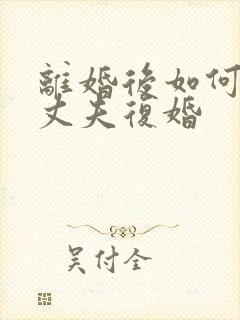 離婚後如何
丈夫復婚
吳付全